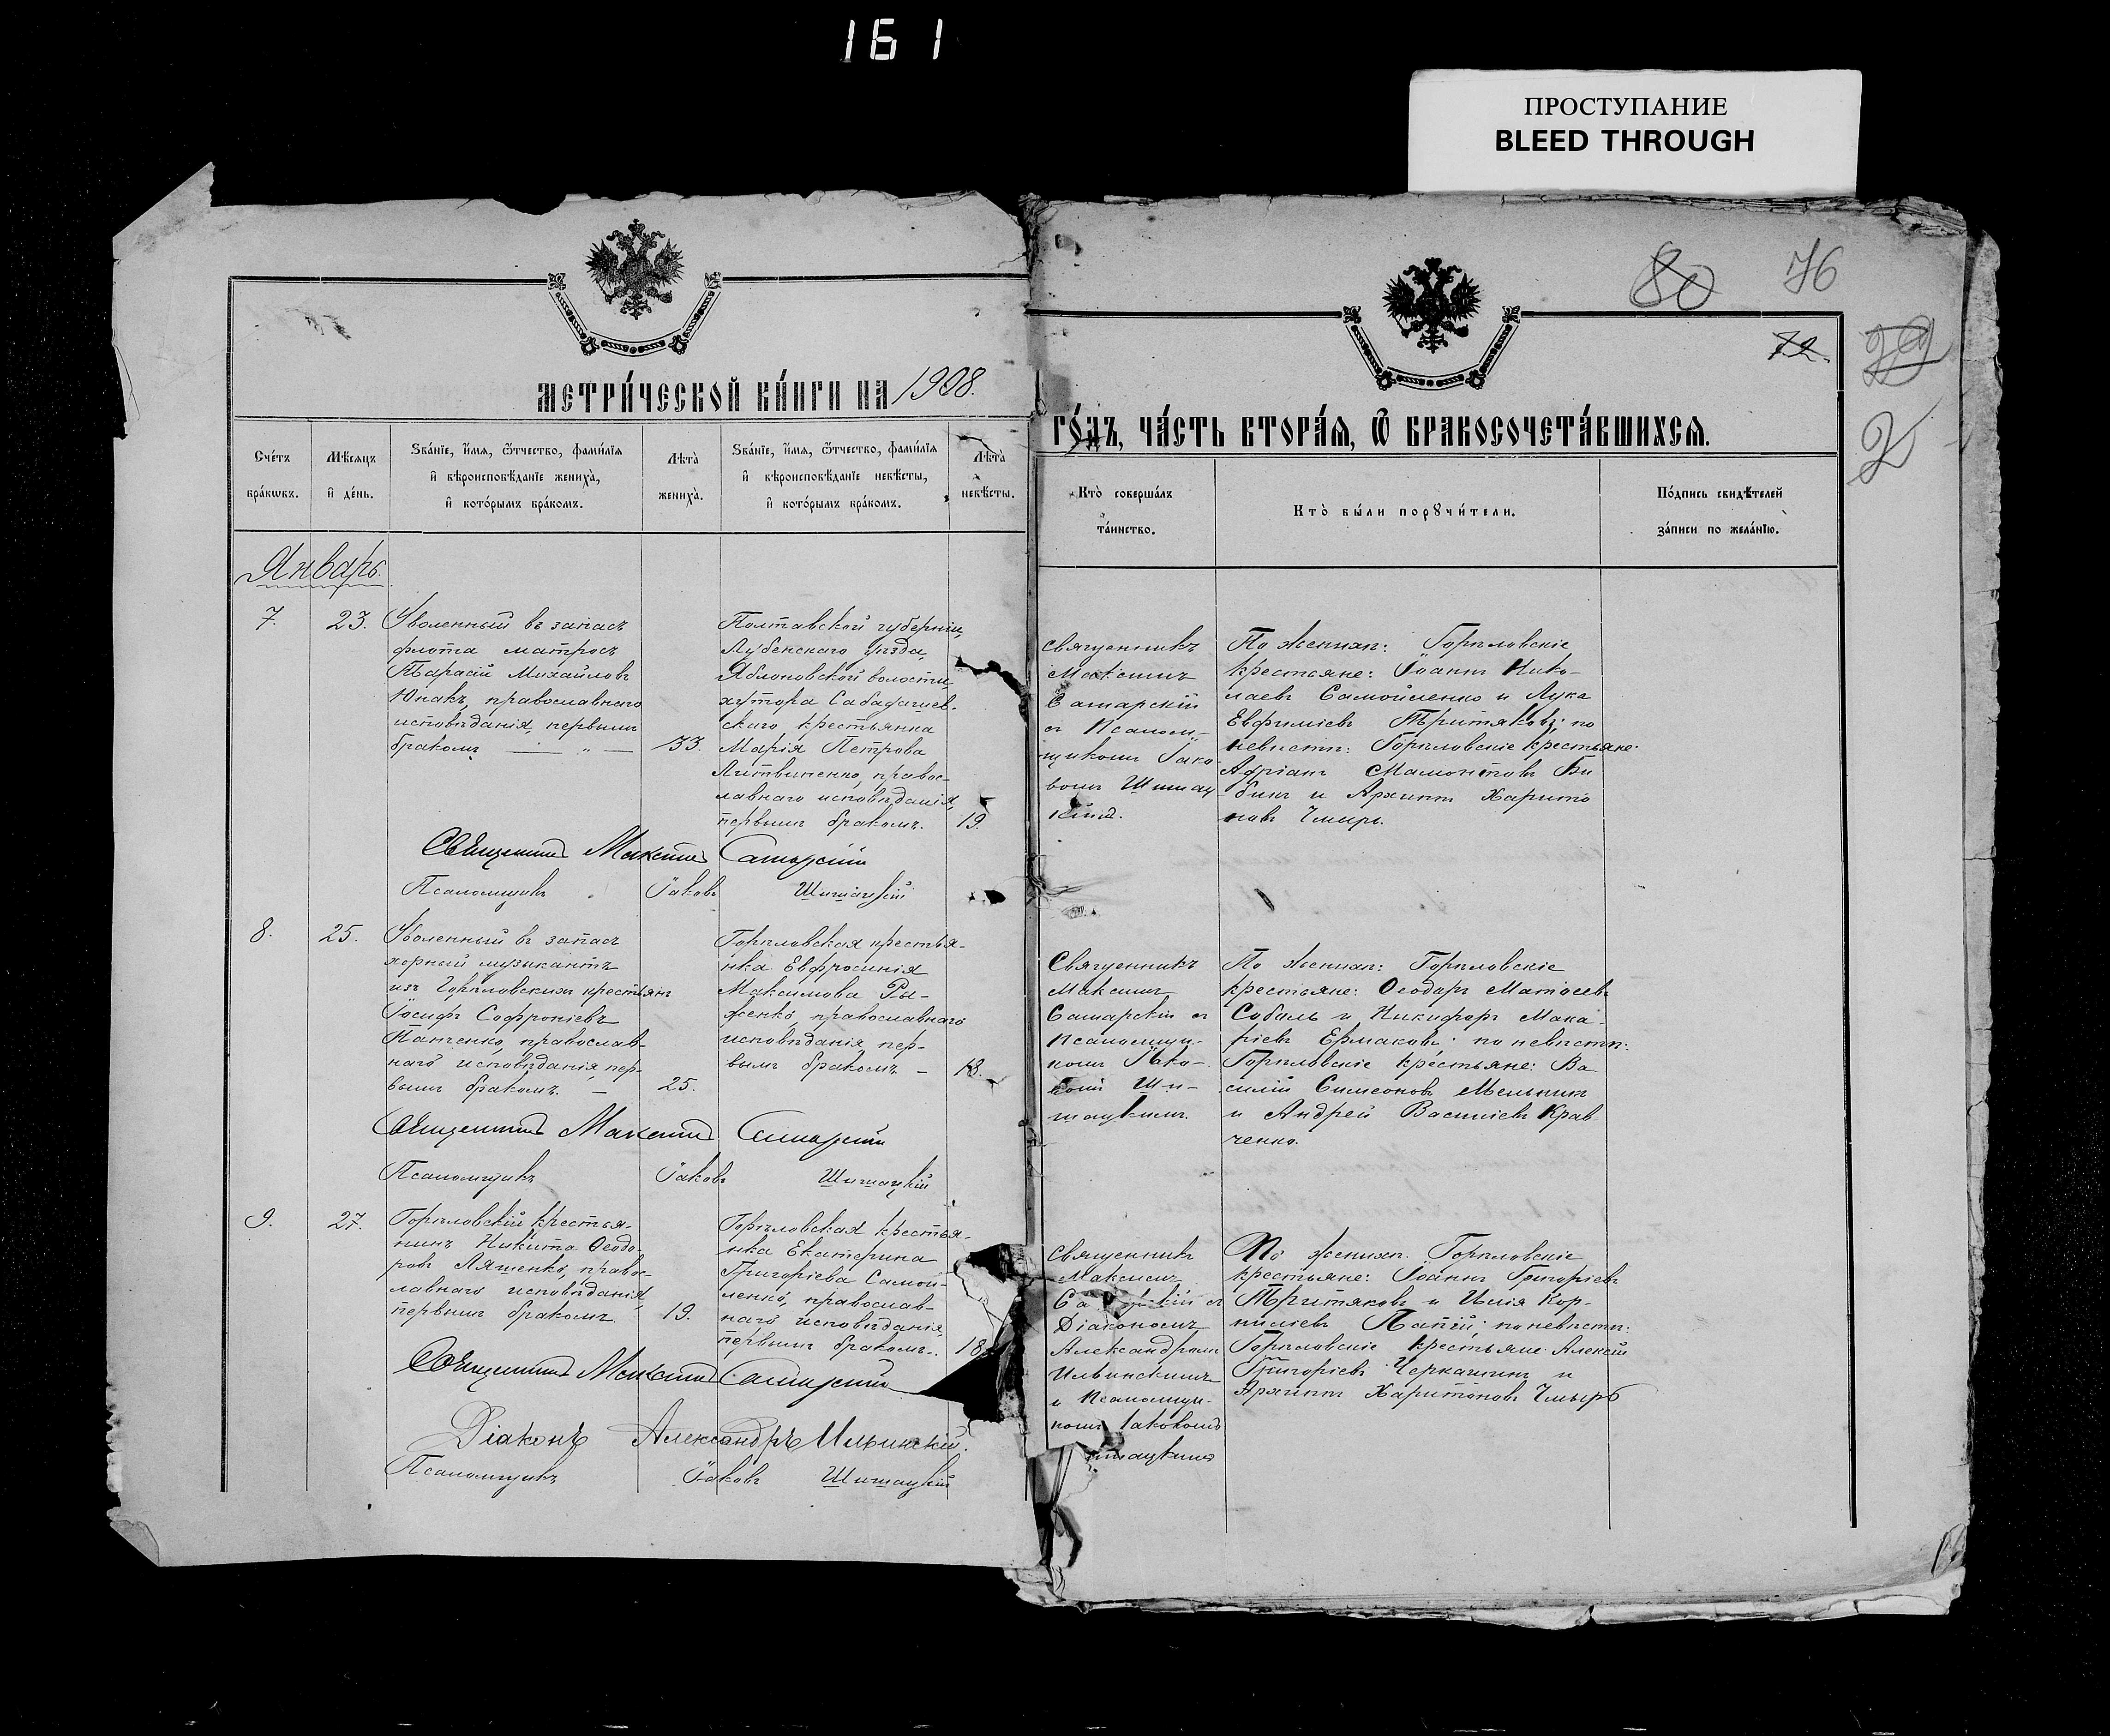 161
ПРОСТУПАНИЕ
BLEED THROUGH
80 76
72.
МЕТРИ́ЧЕСКОЙ КНИ́ГИ НА 1908.
ГО́ДЪ, ЧА́СТЬ ВТОРА́Я, Ѿ БРАКОСОЧЕТА́ВШИХСЯ.
Сче́тъ
бра́кѡвъ.
Мѣсяцъ
и҆ де́нь.
Зва́нїе, и҆́мя, ѻ҆́тчество, фами́лїя
и҆ вѣроисповѣ́данїе жениха̀,
и҆ кото́рымъ бра́комъ.
Лѣта̀
жениха̀.
Зва́нїе, и҆́мя, ѻ҆́тчество, фами́лїя
и҆ вѣроисповѣ́данїе невѣ́сты,
и҆ кото́рымъ бра́комъ.
Лѣта̀
невѣ́сты.
Кто̀ соверша́лъ
та́инство.
Кто̀ бы́ли порꙋчи́тели.
По́дпись свидѣ́телей
за́писи по жела́нїю.
Январь.
7.
23.
Уволенный въ запасъ
флота матросъ
Тарасій Михайловъ
Юнакъ, православнаго
исповѣданія, первымъ
бракомъ
33.
Полтавской губерніи,
Лубенскаго уѣзда,
Яблоновской волости,
хутора
скаго, крестьянка
Марія Петрова
Литвиненко, правос-
лавнаго исповѣданія,
первымъ бракомъ.
19.
Священникъ
Максимъ
Самарскій
съ Псалом-
щикомъ Іако-
вомъ Шишац-
кимъ.
По женихѣ: Горѣловскіе
крестьяне: Іоаннъ Нико-
лаевъ Самойленко и Лука
Евфиміевъ Тритяковъ; по
невѣстѣ: Горѣловскіе крестьяне:
Адріанъ Мамонтовъ Би
бикъ и Архиппъ Харито
новъ Чмырь.
Священникъ Максимъ Самарскій
Псаломщикъ Іаковъ Шишацкій
8.
25.
Уволенный въ запасъ
хорный музыкантъ
изъ Горѣловскихъ крестьянъ
Іосифъ Софроніевъ
Панченко, православ-
наго исповѣданія, пер-
вымъ бракомъ. —
25.
Горѣловская крестья-
нка Евфросинія
Максимова Ры-
женко православнаго
исповѣданія, пер-
вымъ бракомъ —
18.
Священникъ
Максимъ
Самарскій съ
Псаломщи-
комъ Іако-
вомъ Ши-
шацкимъ.
По женихѣ: Горѣловскіе
крестьяне: Ѳеодоръ Матѳеевъ
Соболь и Никифоръ Мака-
ріевъ Ермаковъ: по невѣстѣ:
Горѣловскіе крестьяне: Ва
силій Симеоновъ Мельникъ
и Андрей Васильевъ Крав-
ченко.
Священникъ Максимъ Самарскій
Псаломщикъ Іаковъ Шишацкій
9.
27.
Горѣловскій крестья-
нинъ Никита Ѳеодо-
ровъ Ляшенко, правос-
лавнаго исповѣданія,
первымъ бракомъ
19.
Горѣловская крестья-
нка Екатерина
Григоріева Самой-
ленко, православ-
наго исповѣданія,
первымъ бракомъ.
18
Священникъ
Максимъ
Са кій съ
Діакономъ
Александромъ
Ильинскимъ
и Псаломщи-
комъ Іаковомъ
шацкимъ
По женихѣ. Горѣловскіе
крестьяне: Іоаннъ Григоріевъ
Тритяковъ и Илія Кор-
ниліевъ Папій; по невѣстѣ:
Горѣловскіе крестьяне Алексій
Григоріевъ Черкашинъ и
Архиппъ Харитоновъ Чмырь
Священникъ Максимъ Самарскій
Діаконъ Александръ Ильинскій.
Псаломщикъ Іаковъ Шишацкій